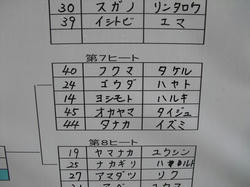 30 スガノ リンタロウ
39 イシトビ エマ
第7ヒート
40 フクマ タケル
24 ゴウダ ハヤト
14 ヨシモト ハルキ
45 オカヤマ タイジュ
44 タナカ イズミ
第8ヒート
19 ヤマナカ ユウシン
25 ナカギリ
27 アマダツ リク